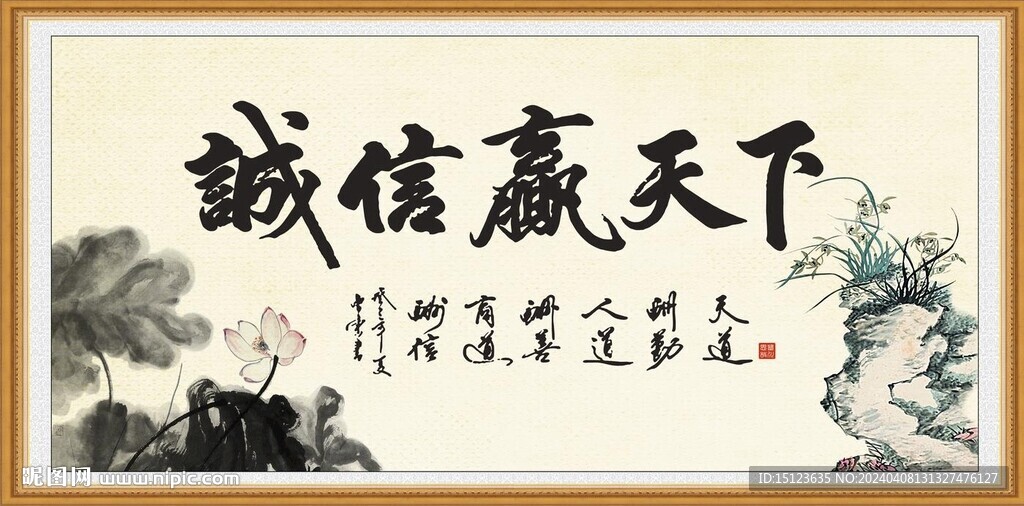 誠信贏天下
天道
酬勤
人道
酬善
商道
酬信
年夏
書
昵图网 www.nipic.com
ID:15123635 NO:20240408131327476127